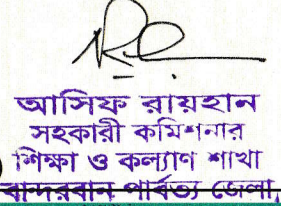 আসিফ রায়হান
সহকারী কমিশনার
শিক্ষা ও কল্যাণ শাখা
বান্দরবান পার্বত্য জেলা,